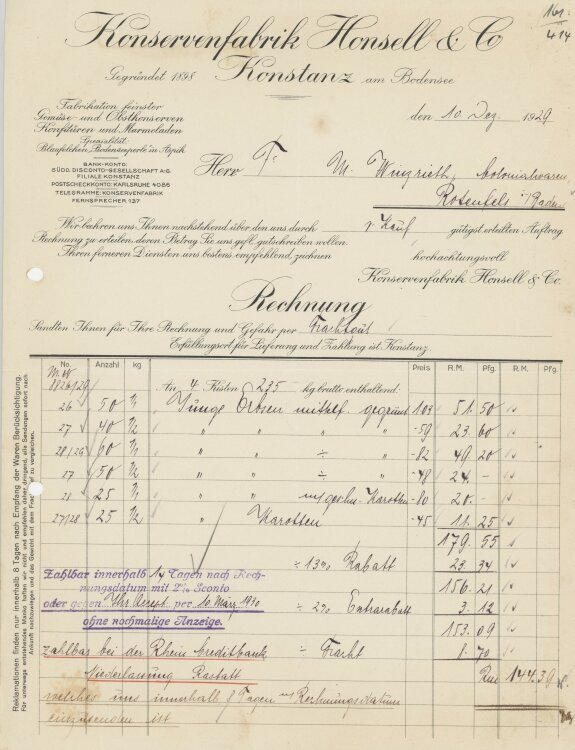 161.
414
Konservenfabrik Honsell & Co
Gegründet 1898 Konstanz am Bodensee
Fabrikation feinster
Gemüse- und Obstkonserven
Konfitüren und Marmeladen
Spezialität:
Blaufelchen „Bodenseeperle“ in Aspik
BANK-KONTO:
SÜDD. DISCONTO-GESELLSCHAFT A:G.
FILIALE KONSTANZ
POSTSCHECKKONTO: KARLSRUHE 4086
TELEGRAMME: KONSERVENFABRIK
FERNSPRECHER 137
den 10. Dez. 1929
Herr F
M.
Rotenfels i/Baden
Wir beehren uns Ihnen nachstehend über den uns durch gütigst erteilten Auftrag
Rechnung zu erteilen, deren Betrag Sie uns gefl. gutschreiben wollen.
Ihren ferneren Diensten uns bestens empfehlend, zeichnen hochachtungsvoll
Konservenfabrik Honsell & Co.
Rechnung
Sandten Ihnen für Ihre Rechnung und Gefahr per Frachtgut
Erfüllungsort für Lieferung und Zahlung ist Konstanz.
No. Anzahl kg Preis R.M. Pfg. R.M. Pfg.
8826/29 An 4 Kisten 235 kg brutto enthaltend:
26 50 1/1 Junge Erbsen mittelf. 103 51.50
27 40 1/2 " " " " -59 23.60
28/29 60 1/1 " " ÷ " -82 49.20
27 50 1/2 " " ÷ " -48 24.-
28 25 1/1 " " Karotten -80 20.-
27/28 25 1/2 " Karotten -45 11.25
179.55
÷ 13% Rabatt 23.34
156.21
÷ 2% Extrarabatt 3.12
153.09
÷ Fracht 8.70
144.39
Zahlbar innerhalb 14 Tagen nach Rech-
nungsdatum mit 2% Sconto
oder gegen Ihr Accept per 10. März 1930
ohne nochmalige Anzeige.
zahlbar bei der Rhein. Creditbank
Niederlassung Rastatt
welches uns innerhalb 8 Tagen Rechnungsdatum
einzusenden ist
Reklamationen finden nur innerhalb 8 Tagen nach Empfang der Waren Berücksichtigung.
Für unterwegs entstandenes Manko haften wir nicht und empfehlen daher dringend, alle Sendungen sofort nach
Ankunft nachzuwiegen und das Gewicht mit dem Frachtbrief zu vergleichen.